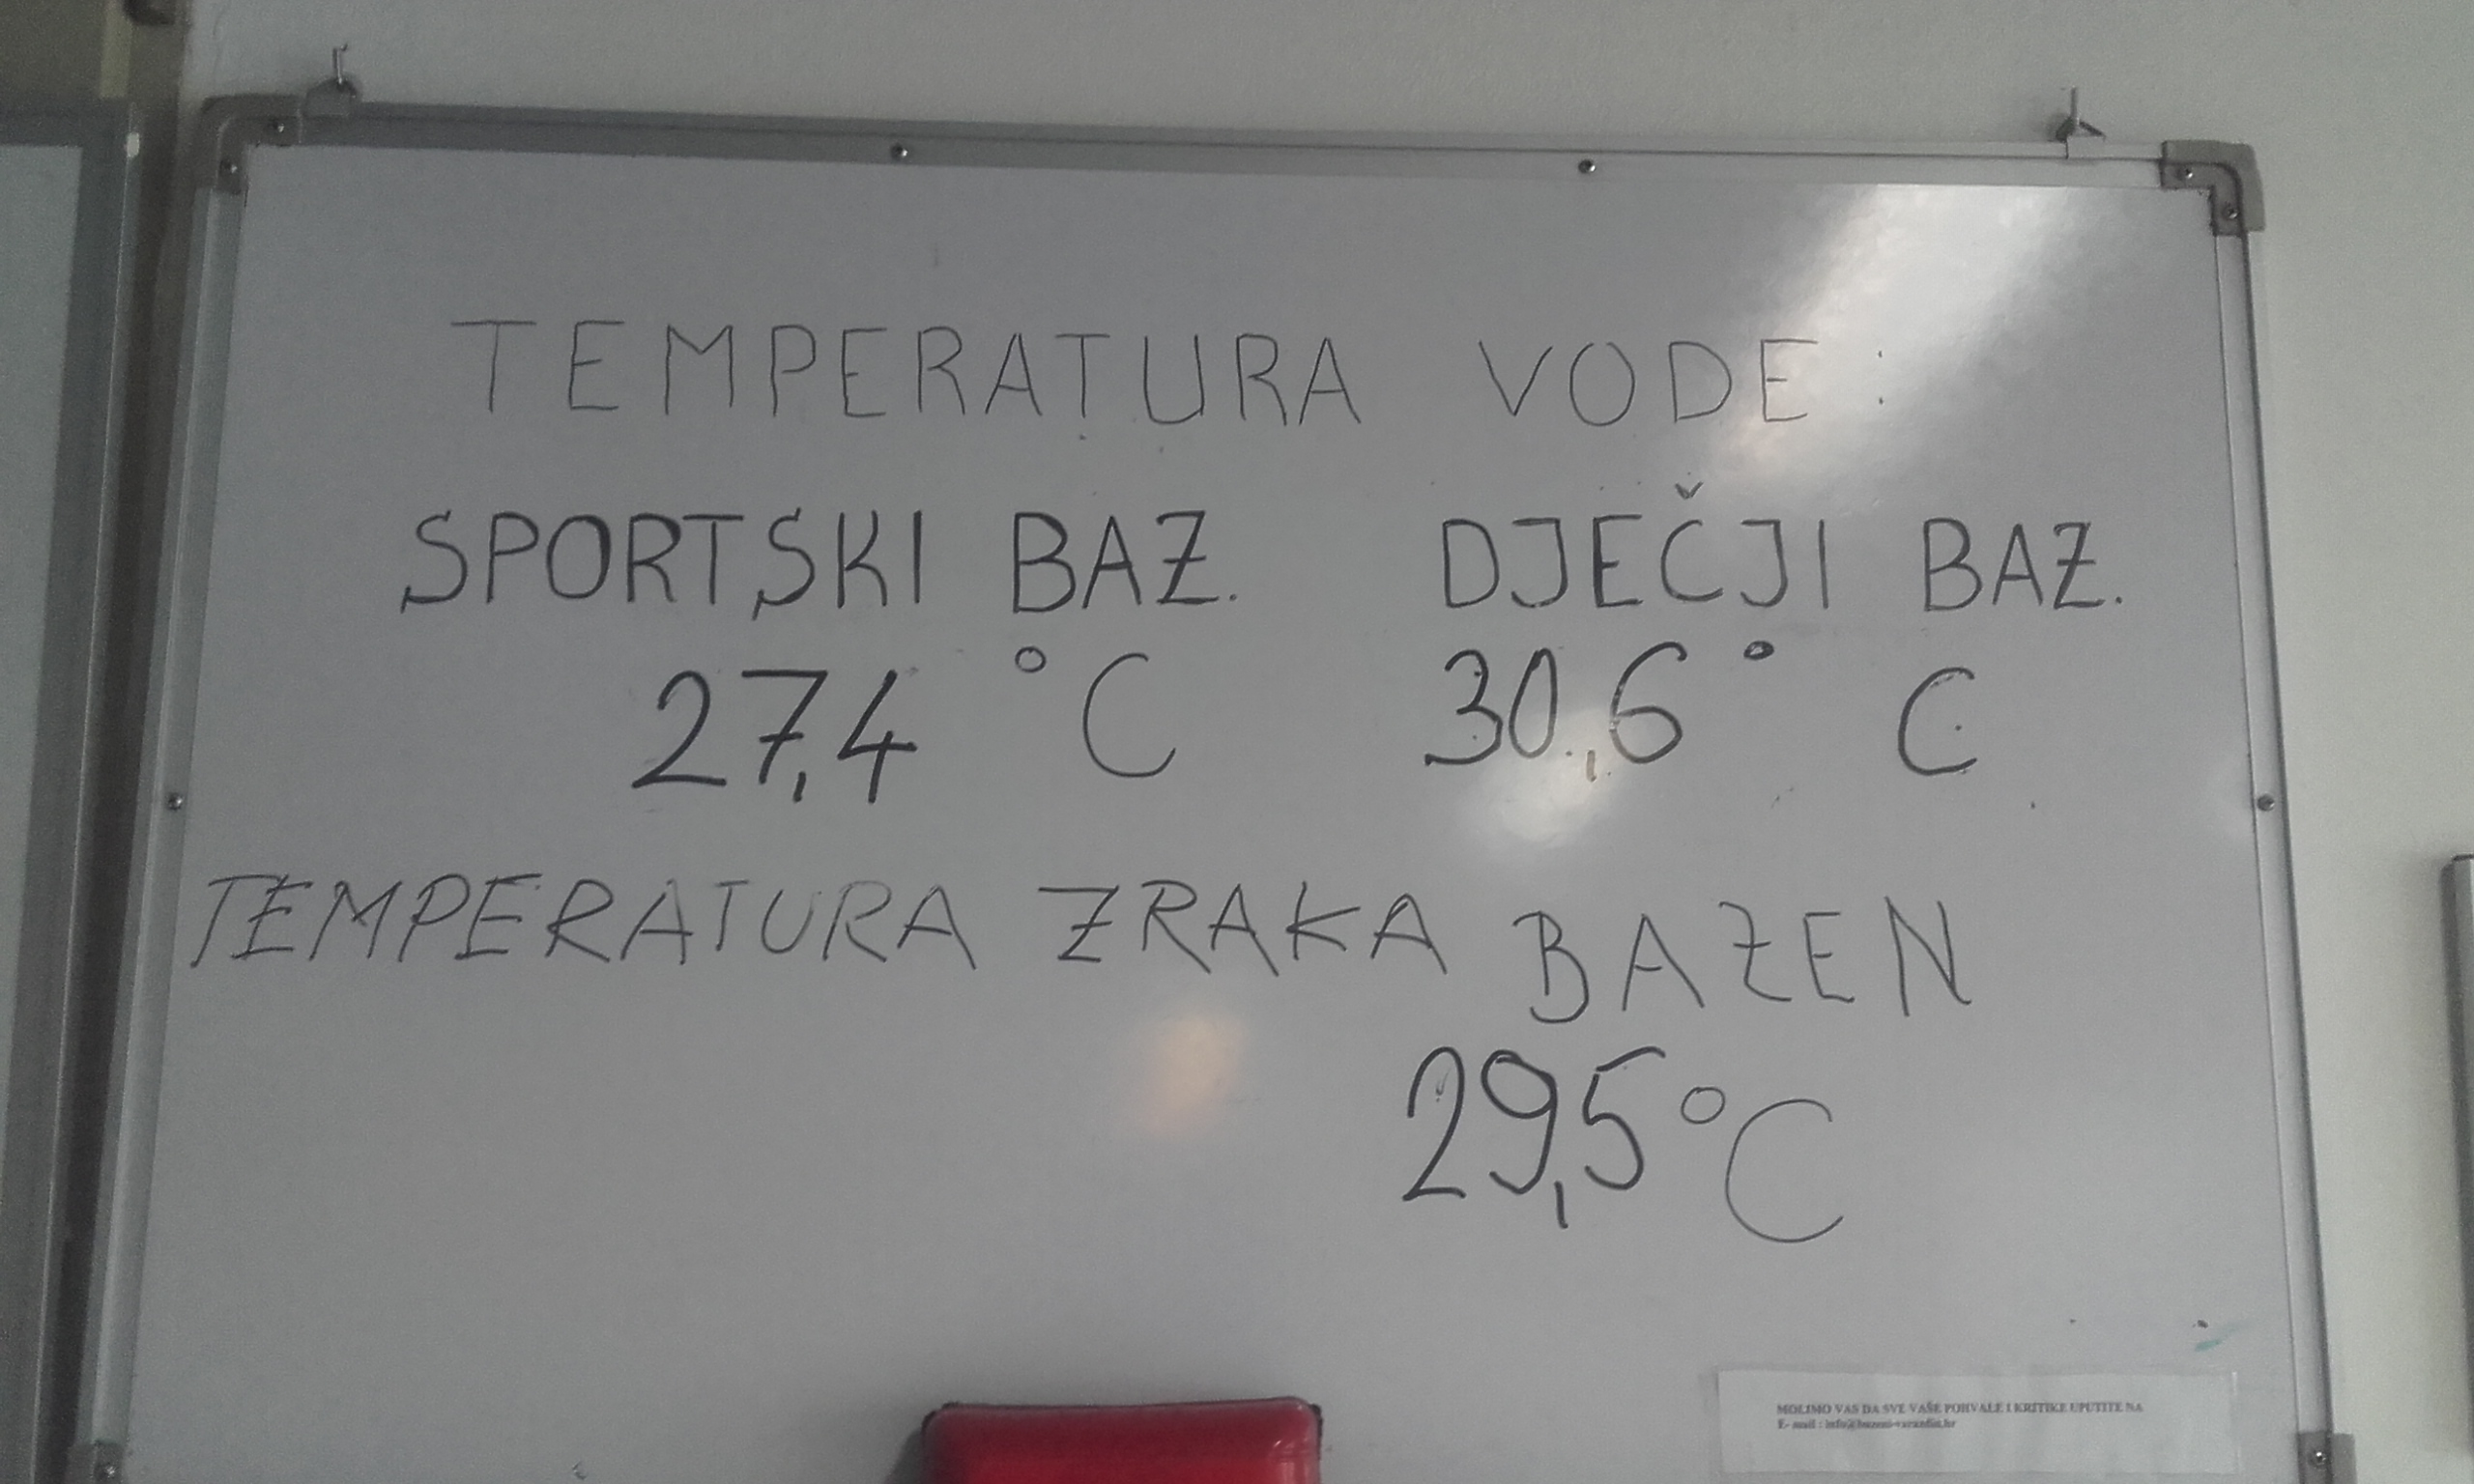 TEMPERATURA VODE:
SPORTSKI BAZ. DJEČJI BAZ.
27,4 °C 30,6 ° C
TEMPERATURA ZRAKA BAZEN
29,5 °C
MOLIMO VAS DA SVE VAŠE POHVALE I KRITIKE UPUTITE NA
E- mail : info@bazeni-varazdin.hr